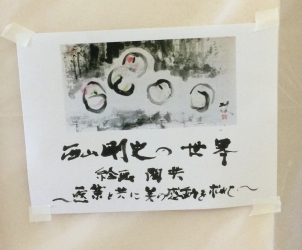 西山剛史の世界
絵画 陶芸
〜医業と共に美の感動を求めて〜